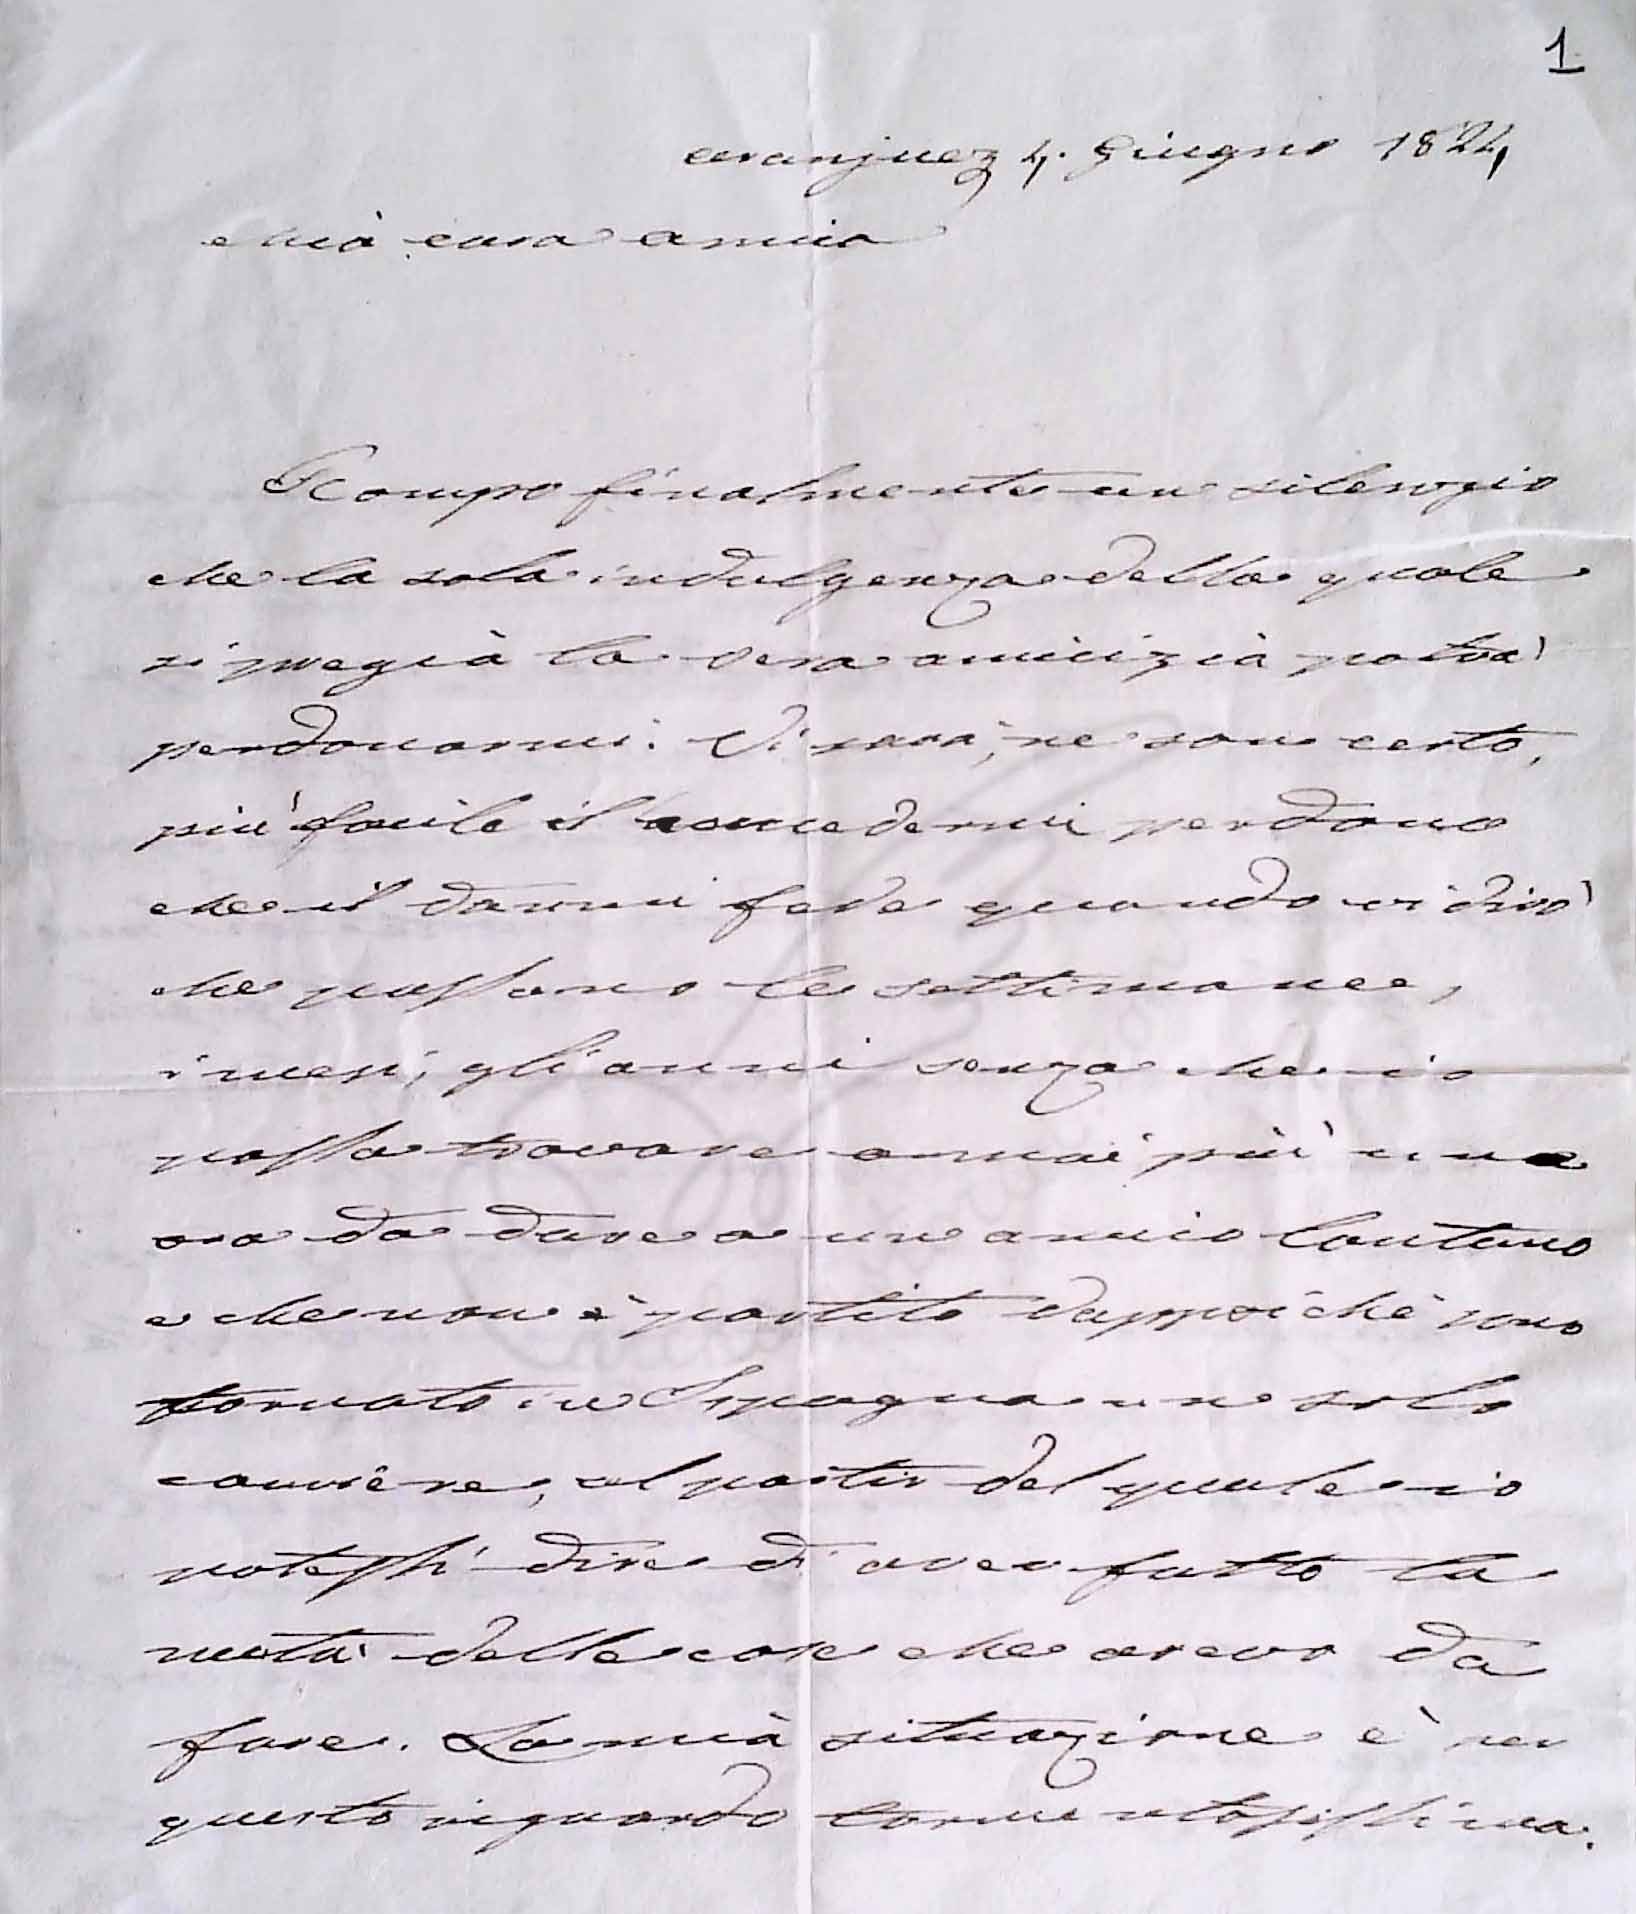 1
Aranjuez 4. Giugno 1824
Mia cara amica
Rompo finalmente un silenzio
che la sola indulgenza della quale
si pregia la vera amicizia potrà
perdonarmi. Vi sarà, ne son certo,
più facile il concedermi perdono
che il darmi fede quando vi dirò
che passano le settimane,
i mesi, gli anni senza che io
possa trovare ormai più una
ora da dare a un amico lontano
e che non è partito dappoichè sono
tornato in Ispagna un solo
corriere, al partir del quale io
potessi dire di aver fatto la
metà delle cose che avevo da
fare. La mia situazione è per
questo riguardo tormentosissima.